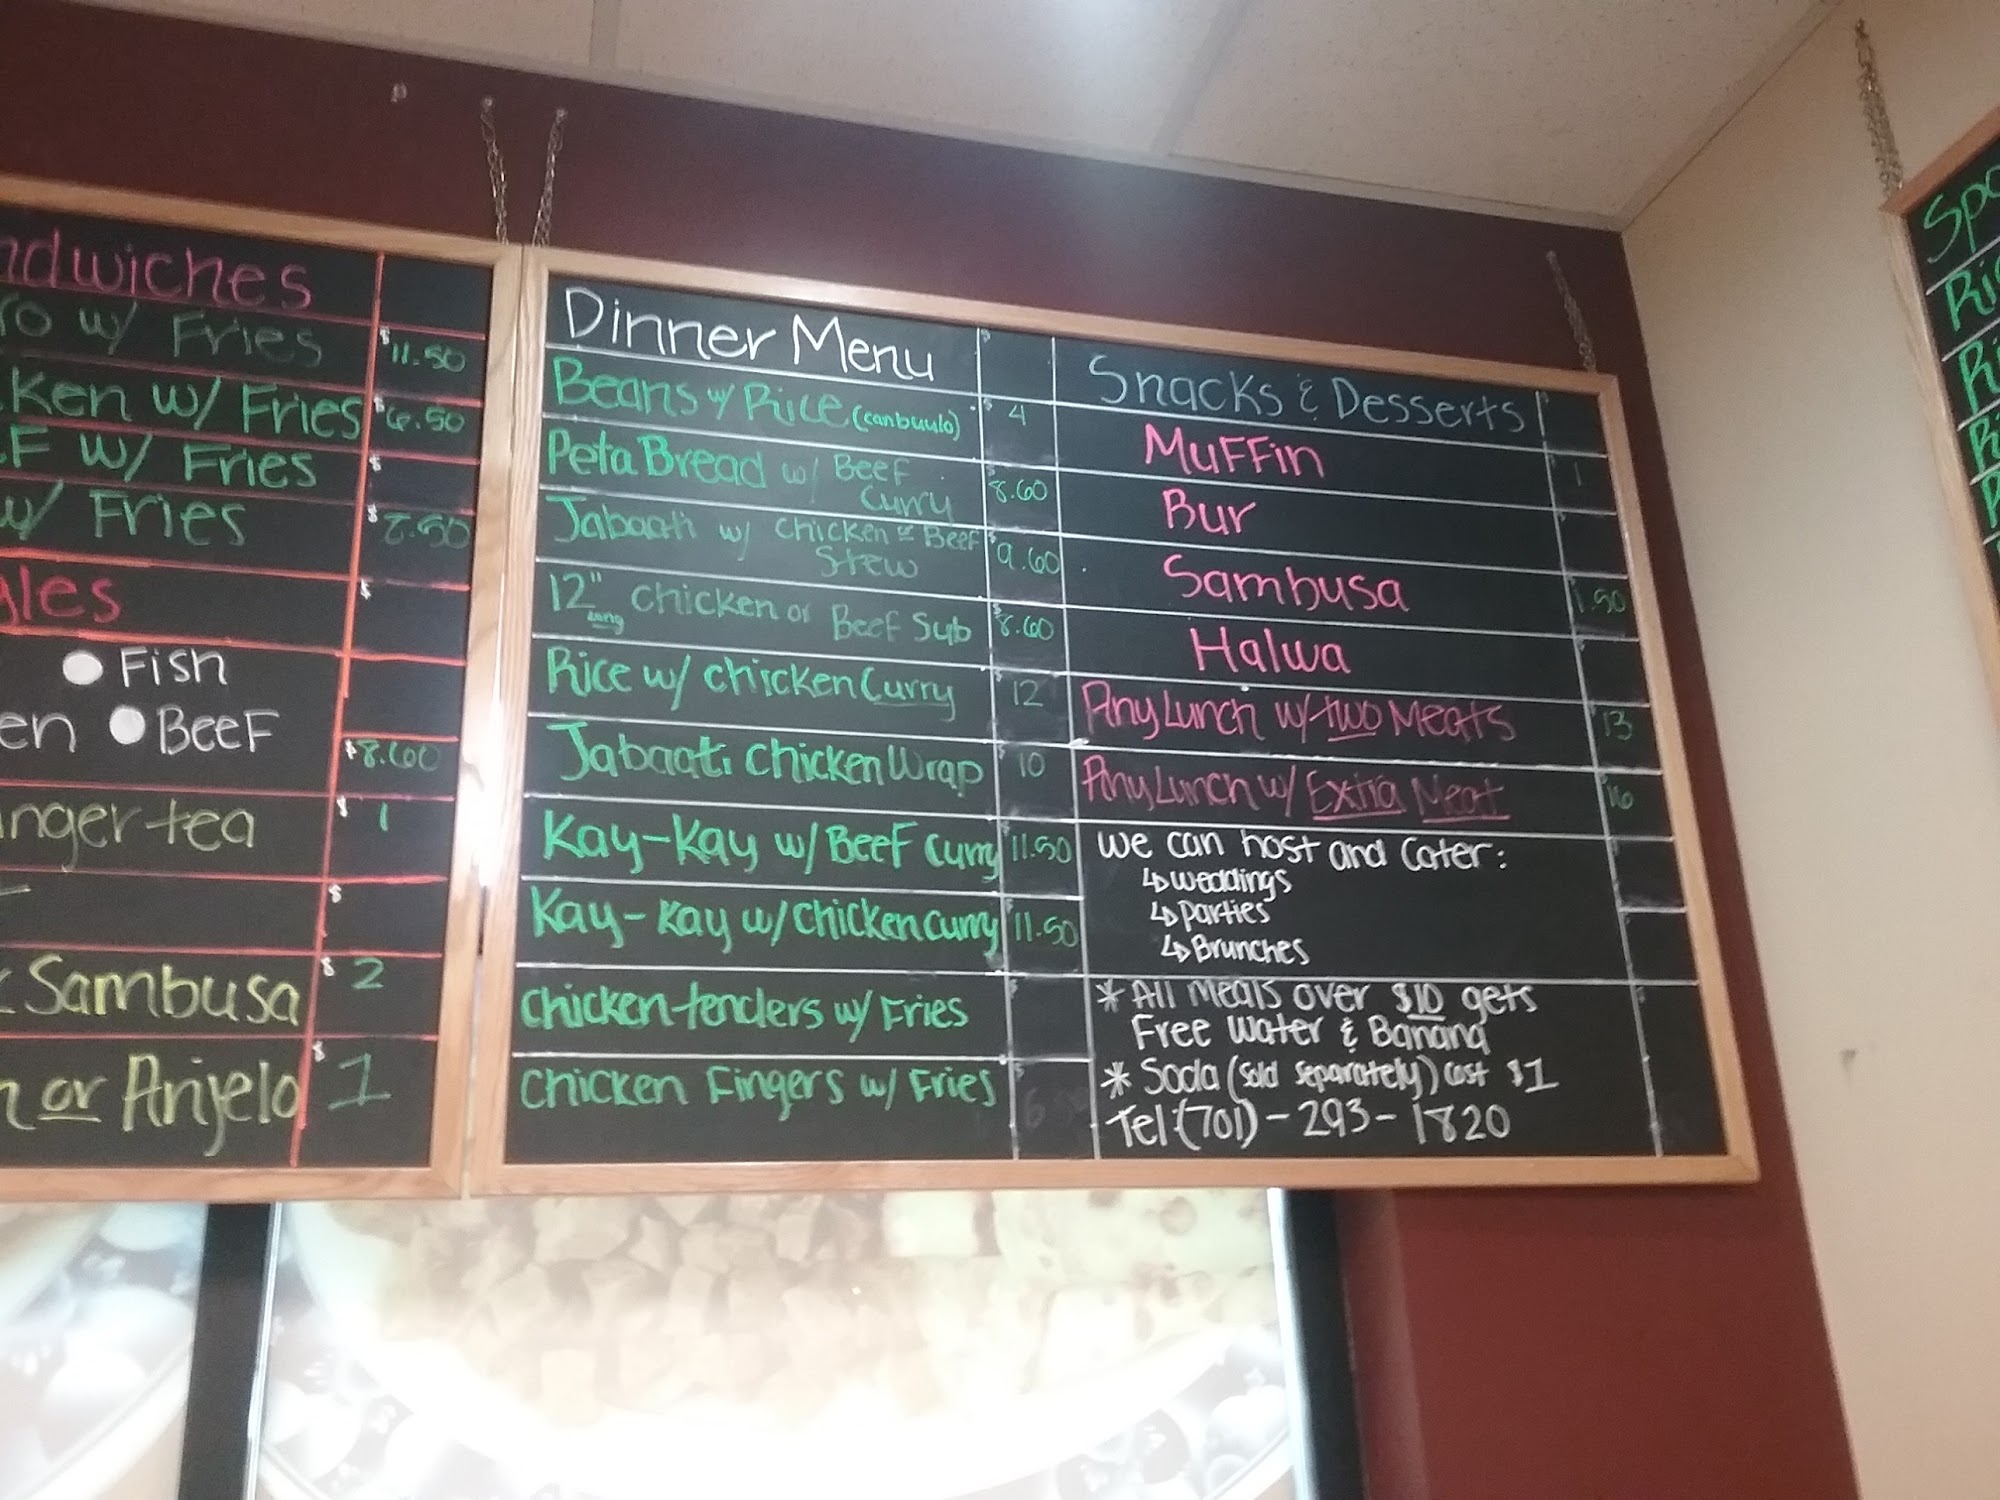 Sandwiches
w/ Fries $11.50
w/ Fries $6.50
w/ Fries $
w/ Fries $
$
Fish
Beef $8.600
tea $1
$
Sambusa $2
or Anjelo $1
Dinner Menu $
Beans w/ Rice (canbuulo) $4
Peta Bread w/ Beef
Curry $8.60
Jabaati w/ Chicken or Beef
Stew $9.60
12" Chicken or Beef Sub $8.60
Long
Rice w/ Chicken Curry $12
Jabaati Chicken Wrap $10
Kay-Kay w/ Beef Curry $11.50
Kay-Kay w/ Chicken Curry $11.50
Chicken tenders w/ Fries $
Chicken Fingers w/ Fries $
Snacks & Desserts $
Muffin $1
Bur $
Sambusa $1.50
Halwa $
Any Lunch w/ two Meats $13
Any Lunch w/ Extra Meat $16
We can host and Cater:
↳ Weddings
↳ Parties
↳ Brunches
* All meals over $10 gets
Free Water & Banana
* Soda (Sold Separately) cost $1
Tel (701)-293-1820